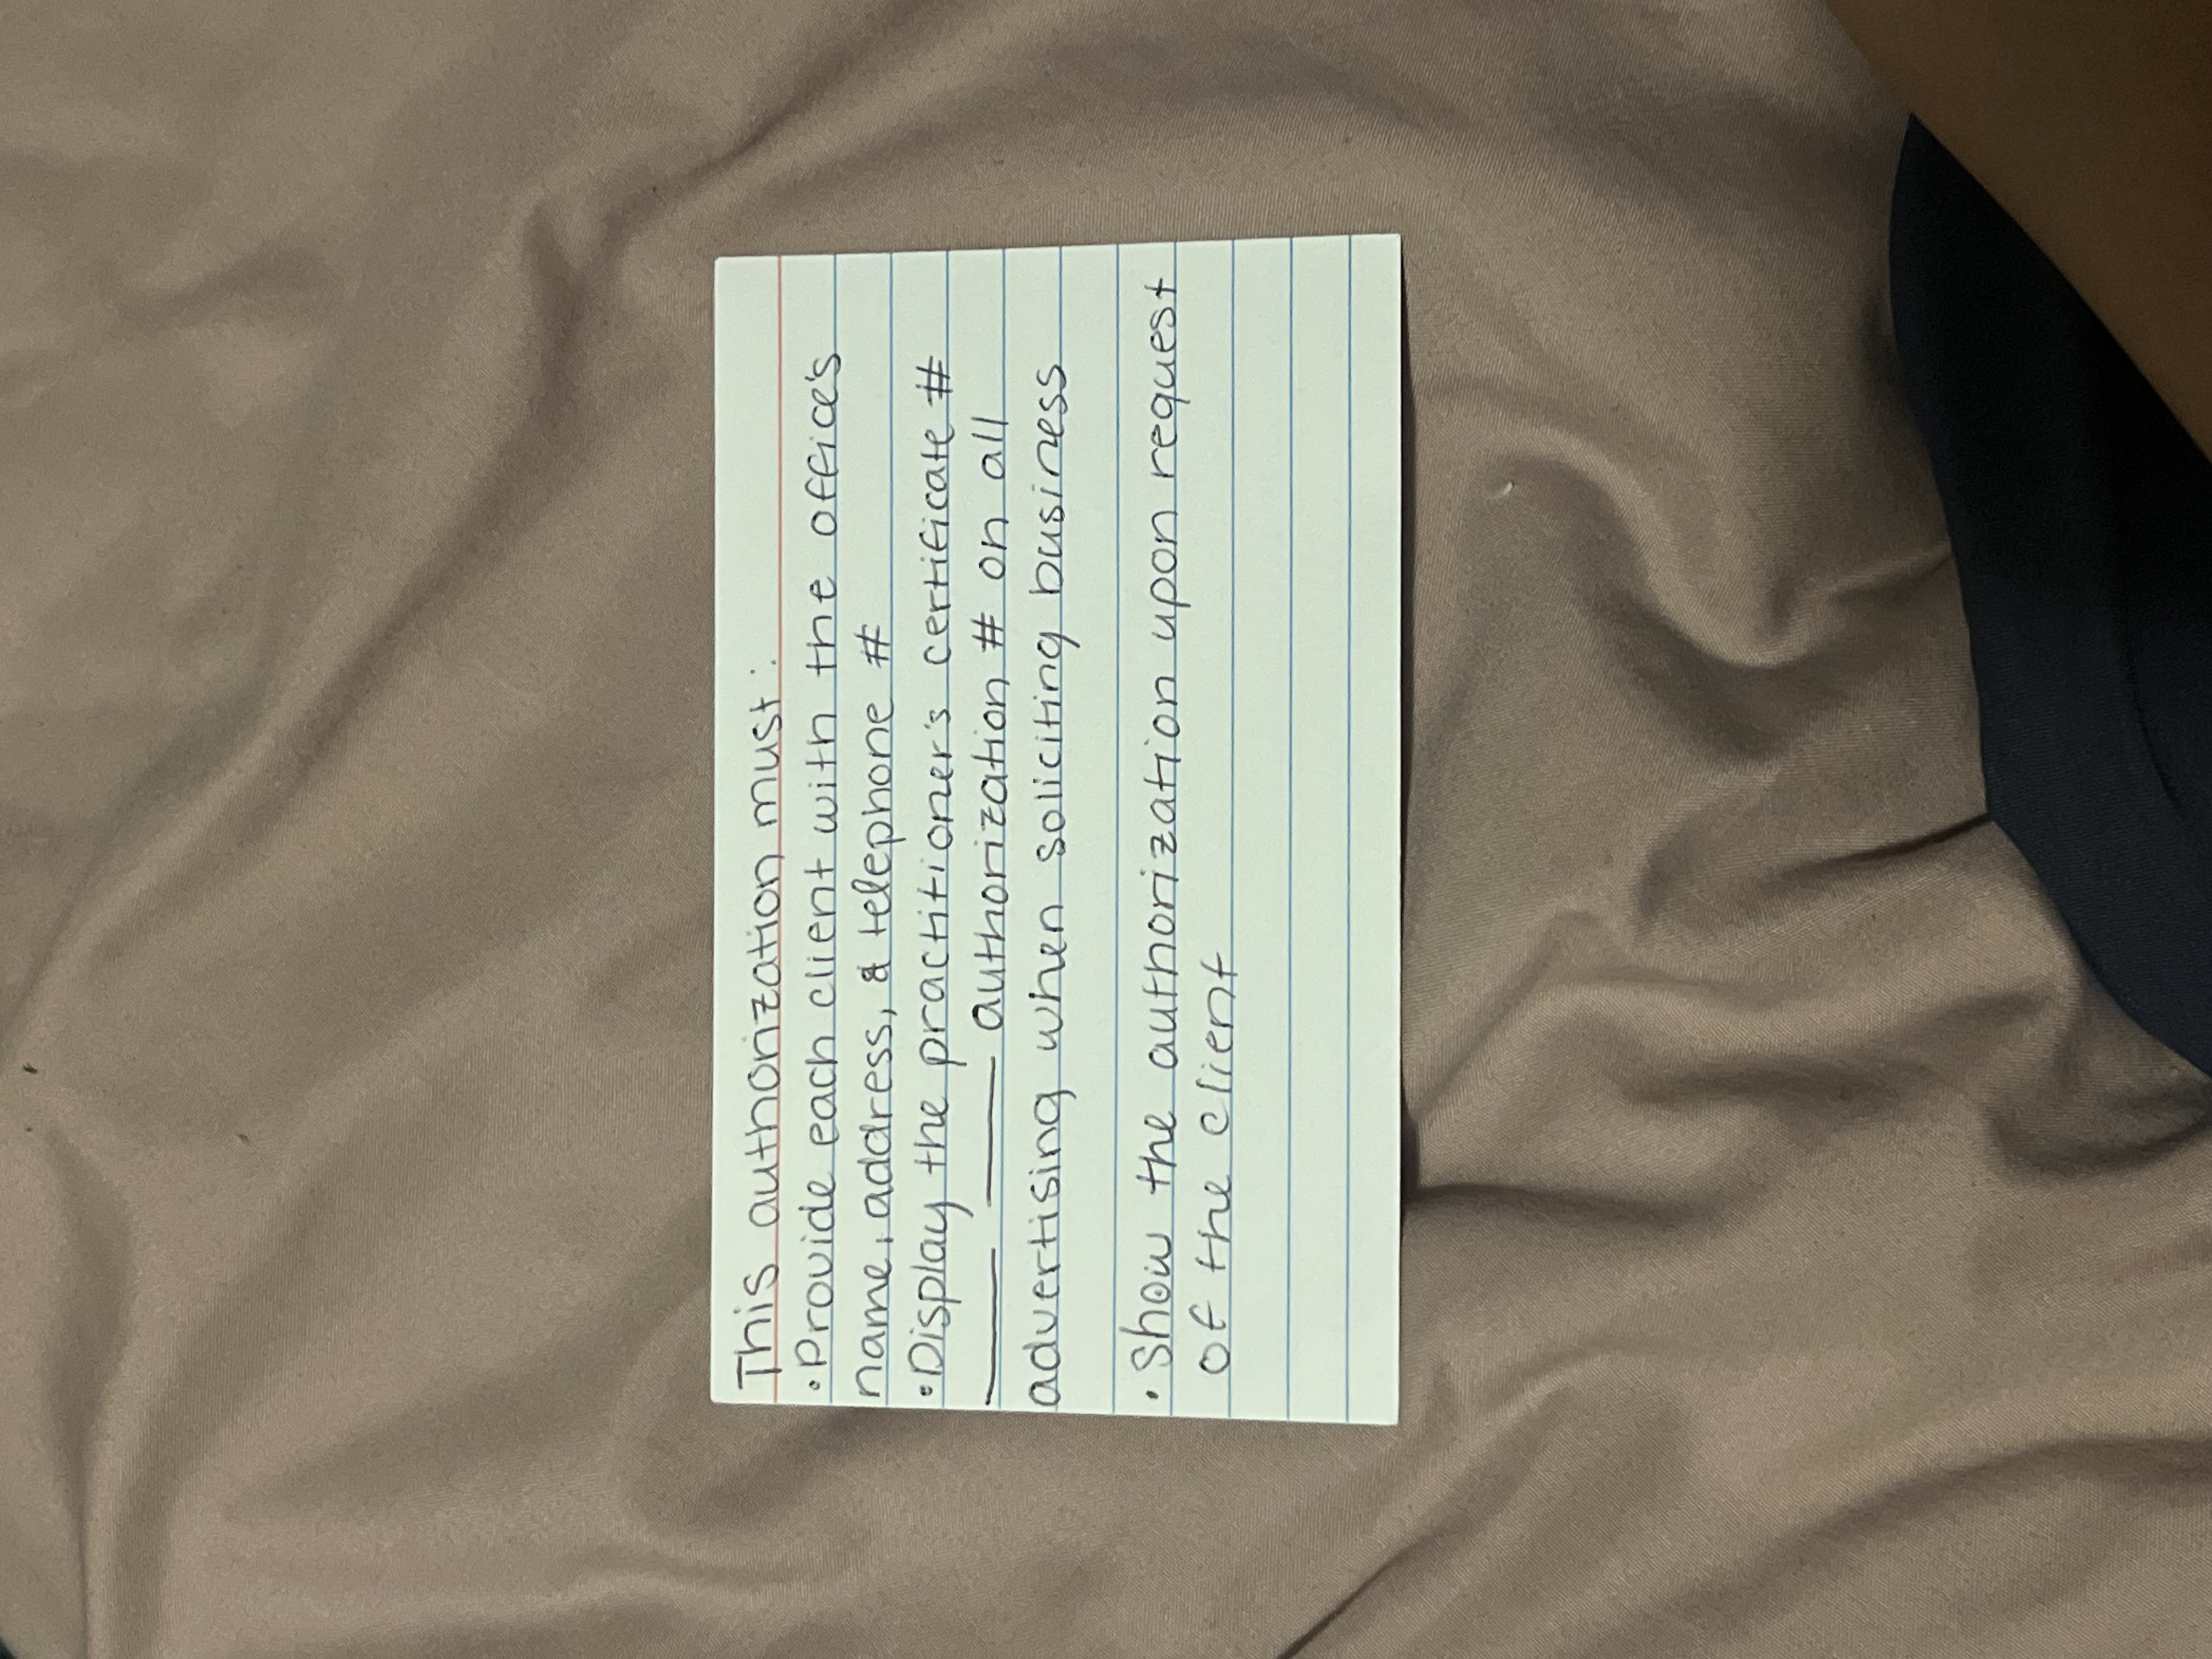 This authorization must:
• Provide each client with the office's
name, address, & telephone #
• Display the practitioner's certificate #
____ ____ authorization # on all
advertising when soliciting business
• Show the authorization upon request
of the client